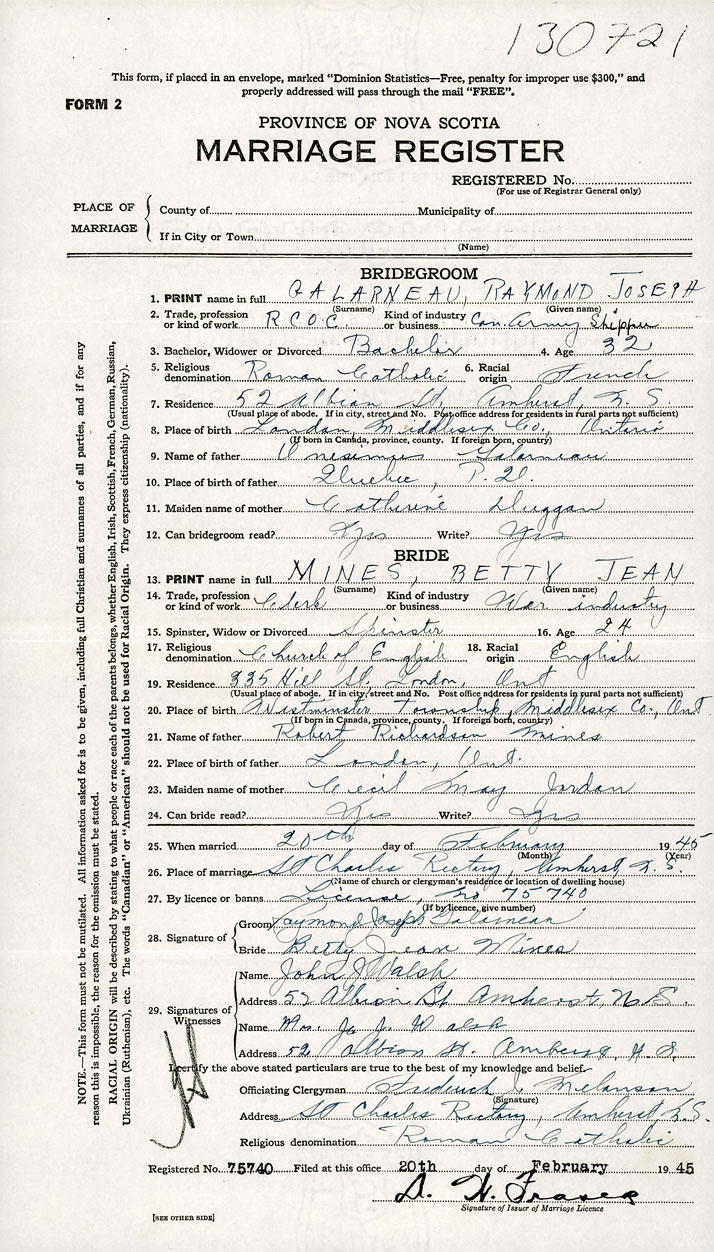 130721
This form, if placed in an envelope, marked "Dominion Statistics—Free, penalty for improper use $300," and
properly addressed will pass through the mail "FREE".
FORM 2
PROVINCE OF NOVA SCOTIA
MARRIAGE REGISTER
REGISTERED No.
(For use of Registrar General only)
PLACE OF MARRIAGE
County of Municipality of
If in City or Town
(Name)
BRIDEGROOM
1. PRINT name in full GALARNEAU, RAYMOND JOSEPH
(Surname) (Given name)
2. Trade, profession or kind of work R C O C. Kind of industry or business Can. Army Shipper
3. Bachelor, Widower or Divorced Bachelor 4. Age 32
5. Religious denomination Roman Catholic 6. Racial origin French
7. Residence 52 Albion St, Amherst, N.S.
(Usual place of abode. If in city, street and No. Post office address for residents in rural parts not sufficient)
8. Place of birth London, Middlesex Co., Ontario
(If born in Canada, province, county. If foreign born, country)
9. Name of father Onesimus Galarneau
10. Place of birth of father Quebec, P.Q.
11. Maiden name of mother Catherine Duggan
12. Can bridegroom read? Yes Write? Yes
BRIDE
13. PRINT name in full MINES, BETTY JEAN
(Surname) (Given name)
14. Trade, profession or kind of work Clerk Kind of industry or business War industry
15. Spinster, Widow or Divorced Spinster 16. Age 24
17. Religious denomination Church of English 18. Racial origin English
19. Residence 335 Hill St. London, Ont
(Usual place of abode. If in city, street and No. Post office address for residents in rural parts not sufficient)
20. Place of birth Westminster Township, Middlesex Co., Ont.
(If born in Canada, province, county. If foreign born, country)
21. Name of father Robert Richardson Mines
22. Place of birth of father London, Ont.
23. Maiden name of mother Cecil May Jordan
24. Can bride read? Yes Write? Yes
25. When married 20th day of February 1945
(Month) (Year)
26. Place of marriage St Charles Rectory, Amherst, N.S.
(Name of church or clergyman's residence or location of dwelling house)
27. By licence or banns License, No 75740
(If by licence, give number)
28. Signature of
Groom Raymond Joseph Galarneau
Bride Betty Jean Mines
29. Signatures of Witnesses
Name John J Walsh
Address 52 Albion St Amherst, N.S.
Name Mrs. J. J. Walsh
Address 52 Albion St. Amherst, N.S.
I certify the above stated particulars are true to the best of my knowledge and belief.
Officiating Clergyman Frederick J. Melanson
(Signature)
Address St Charles Rectory, Amherst N.S.
Religious denomination Roman Catholic
Registered No. 75740 Filed at this office 20th day of February 1945
D. W. Fraser
Signature of Issuer of Marriage Licence
[SEE OTHER SIDE]
NOTE.—This form must not be mutilated. All information asked for is to be given, including full Christian and surnames of all parties, and if for any
reason this is impossible, the reason for the omission must be stated.
RACIAL ORIGIN will be described by stating to what people or race each of the parents belongs, whether English, Irish, Scottish, French, German, Russian,
Ukrainian (Ruthenian), etc. The words "Canadian" or "American" should not be used for Racial Origin. They express citizenship (nationality).